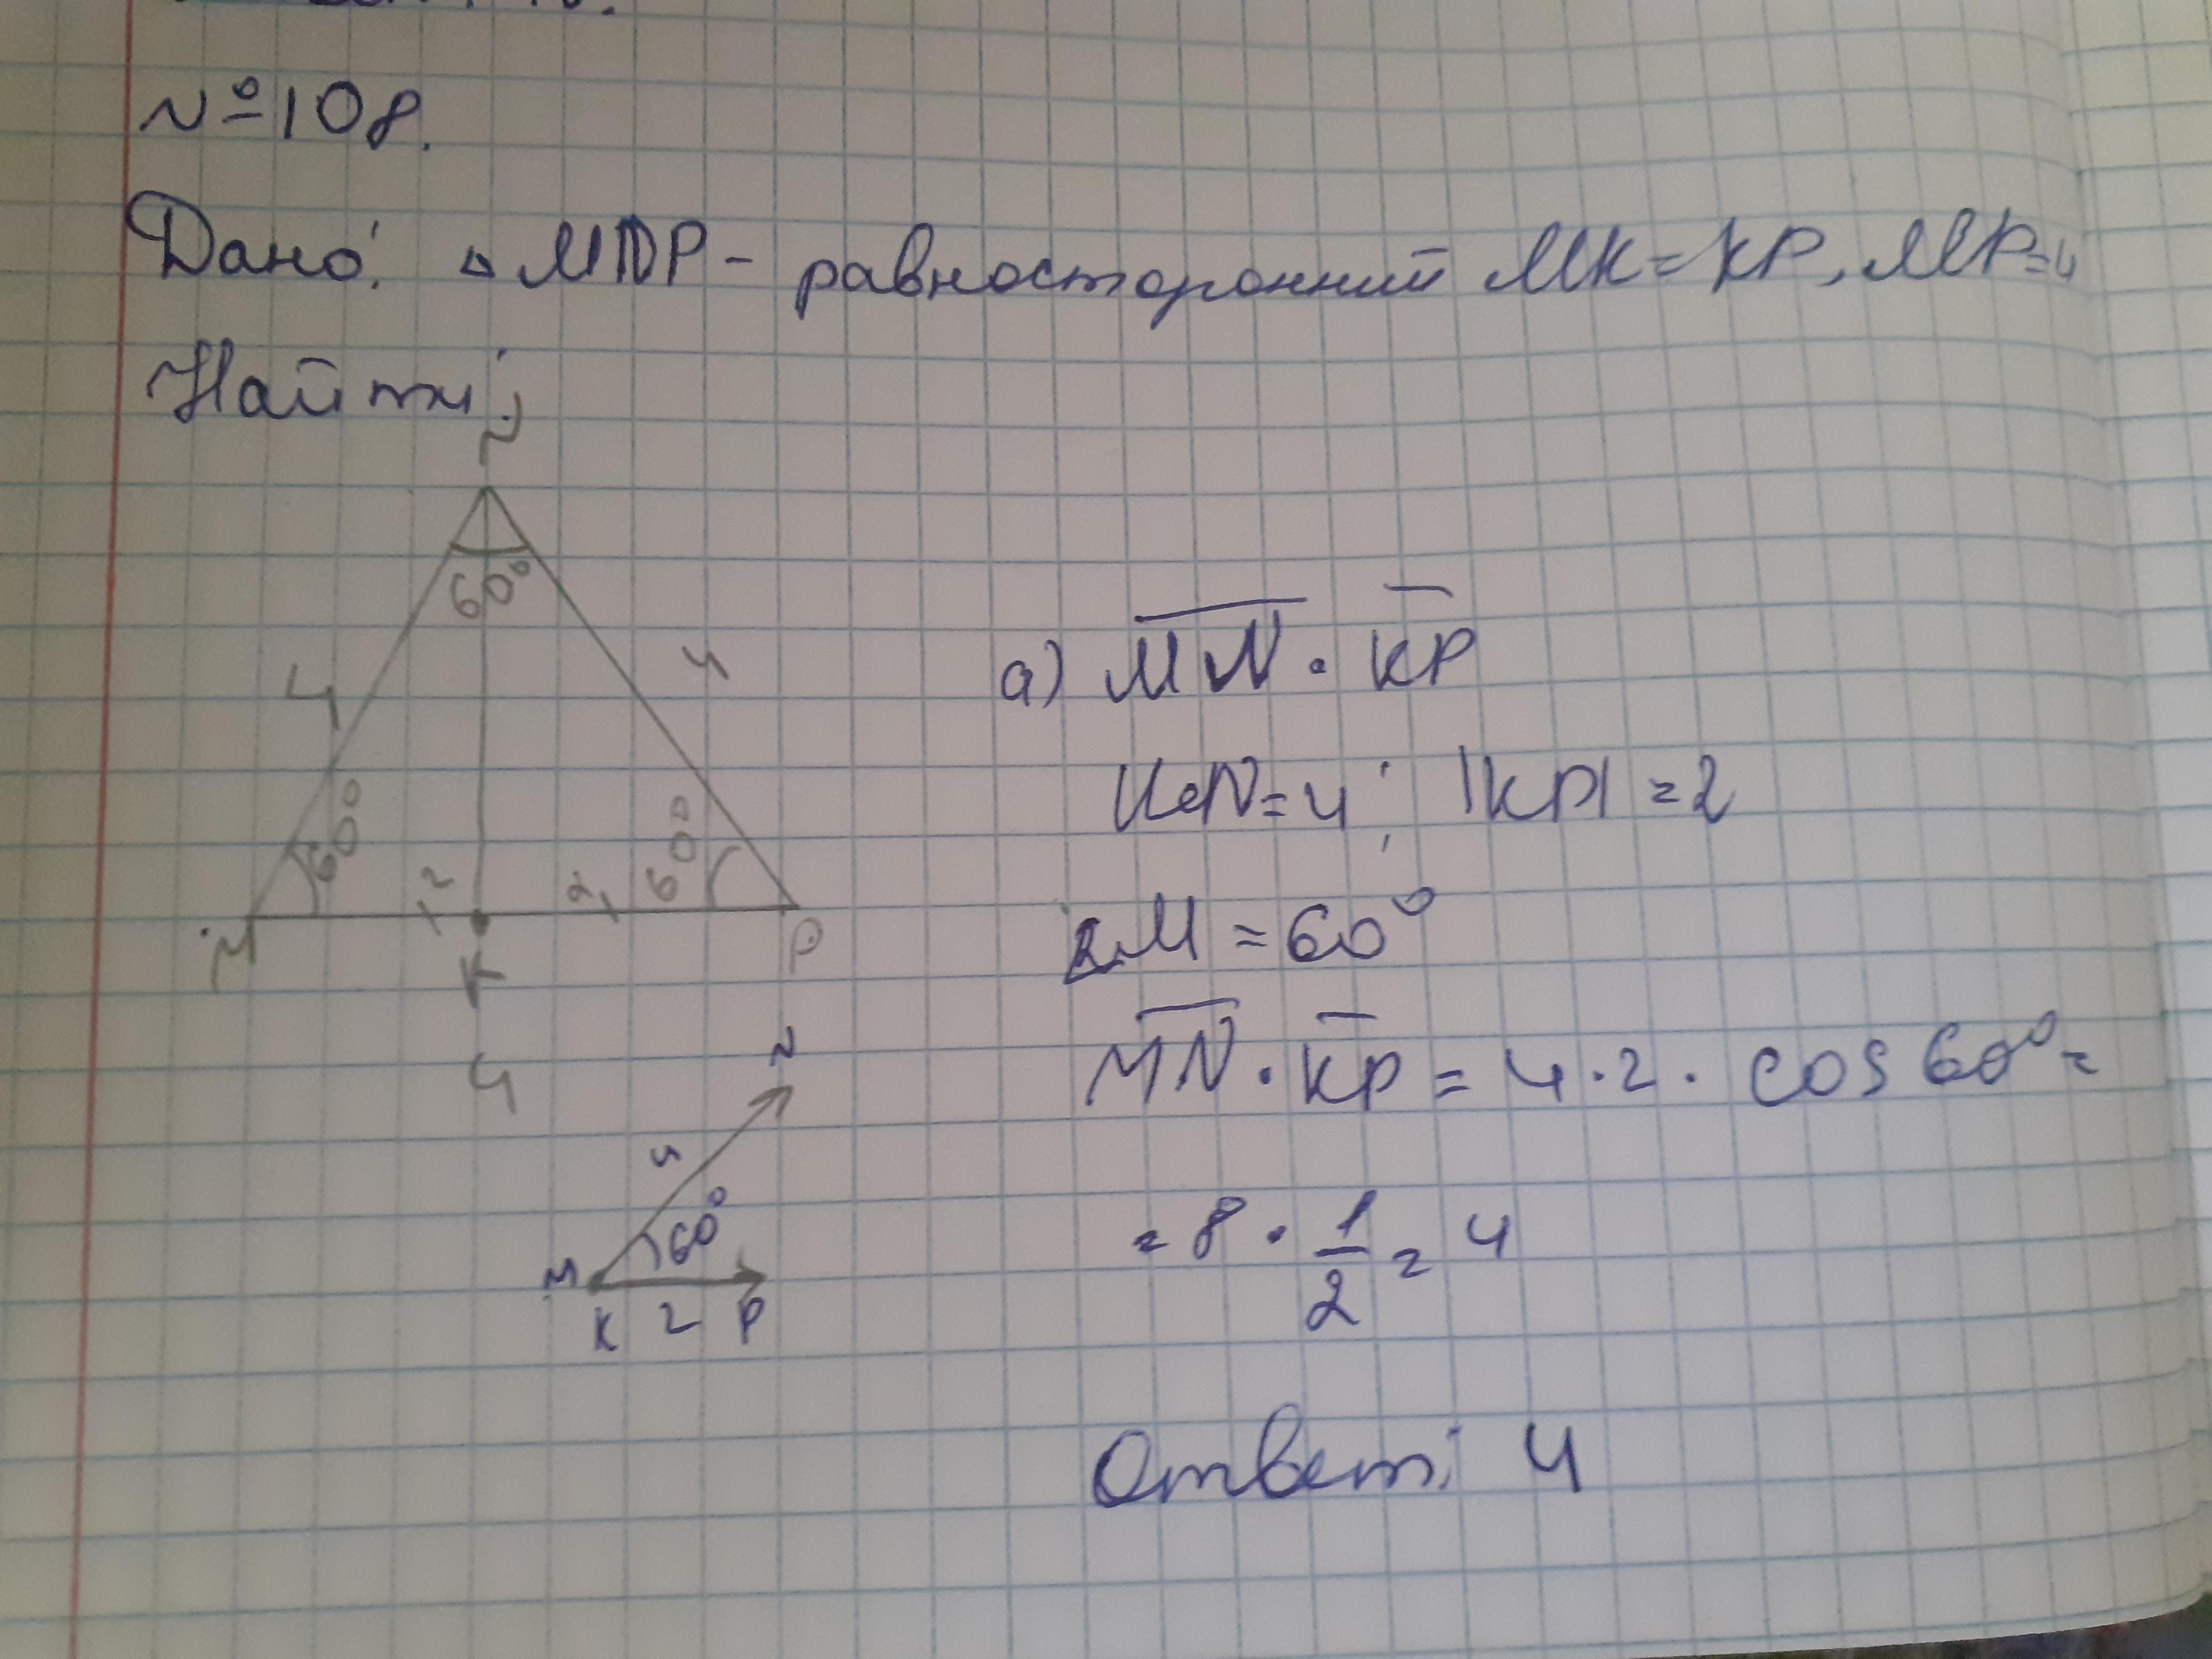 №108.
Дано: △MNP - равносторонний MK = KP, MP=4
Найти:
N
60°
4
4
60°
2
2
60°
M
K
P
4
N
4
60°
M
K 2 P
а) MN · KP
MN=4; |KP| = 2
∠M = 60°
MN · KP = 4·2· cos 60° =
= 8 · 1/2 = 4
Ответ: 4